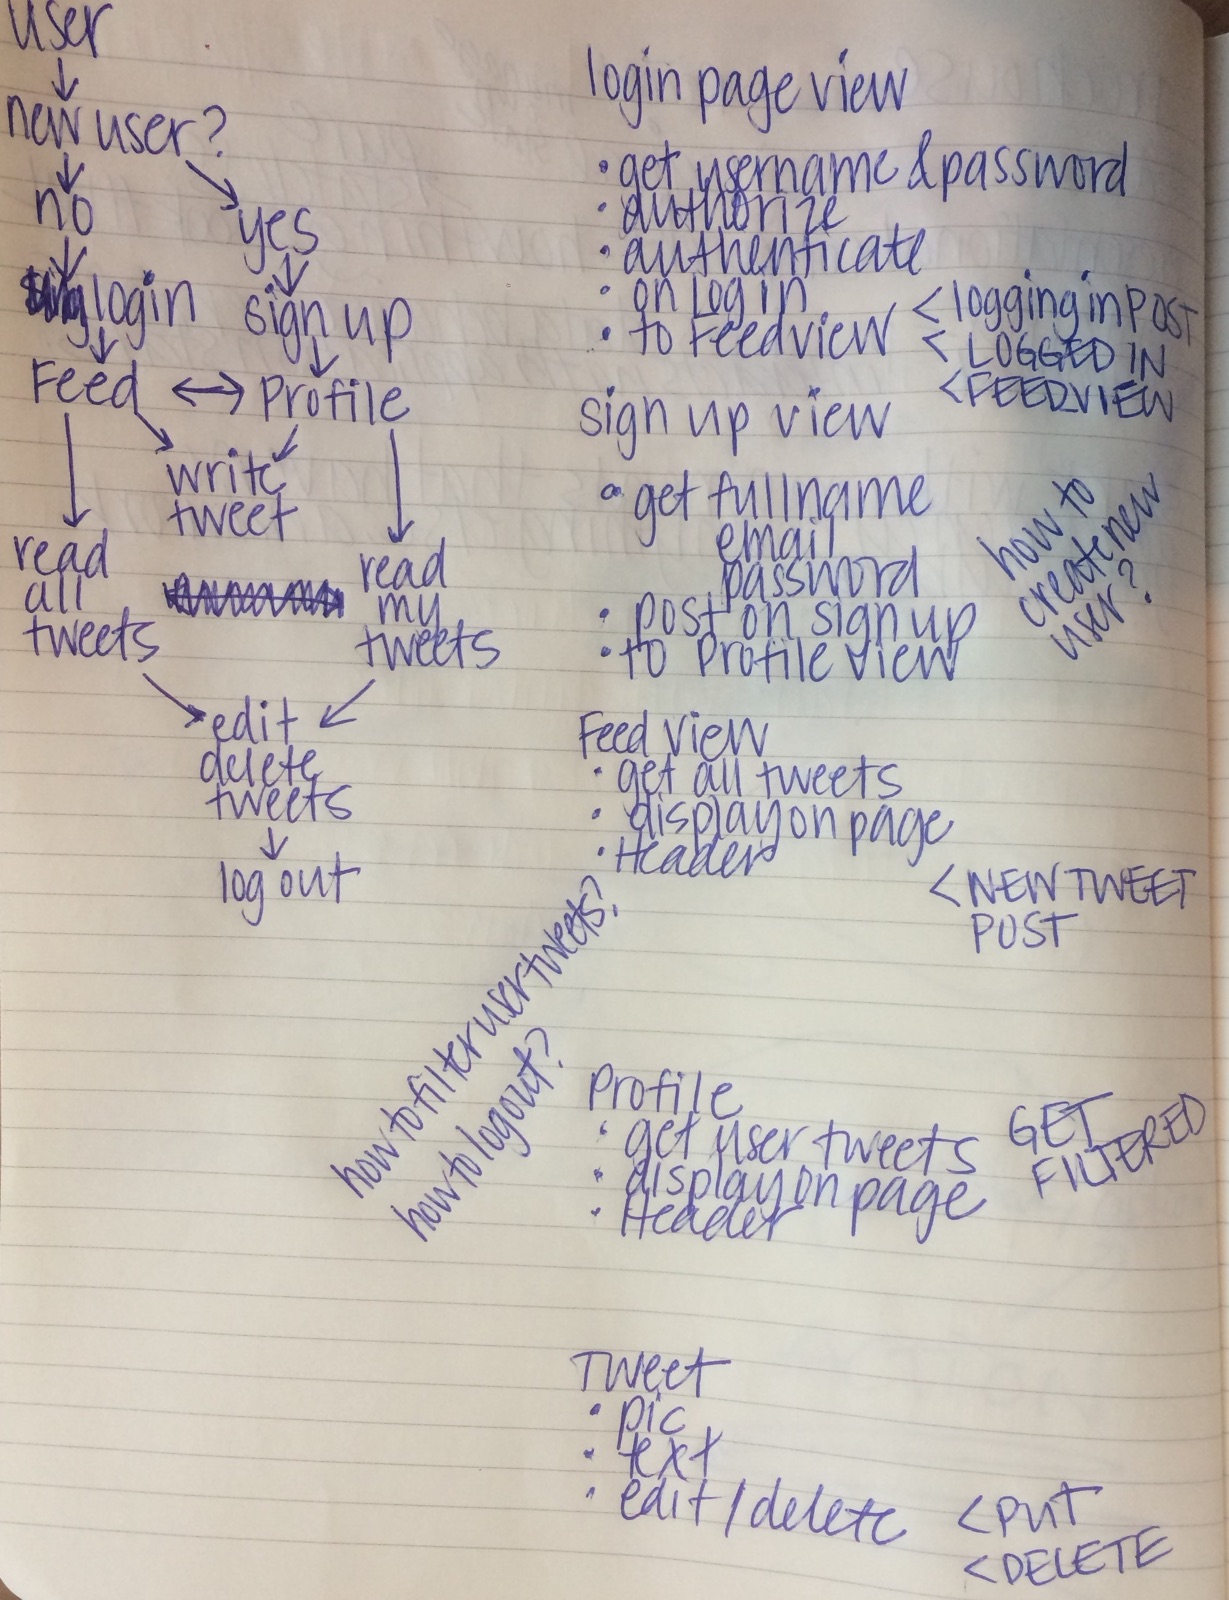 user
new user?
no
yes
login
sign up
Feed
Profile
write
tweet
read
all
tweets
read
my
tweets
edit
delete
tweets
log out
login page view
• get username & password
• authorize
• authenticate
• on Log in
• to Feedview
< logging in POST
< LOGGED IN
< FEEDVIEW
sign up view
• get full name
email
password
• post on sign up
• to Profile view
how to
create new
user?
Feed view
• get all tweets
• display on page
• Header
< NEW TWEET
POST
how to filter user tweets?
how to logout?
Profile
• get user tweets
• display on page
• Header
GET
FILTERED
Tweet
• pic
• text
• edit/delete
< PUT
< DELETE